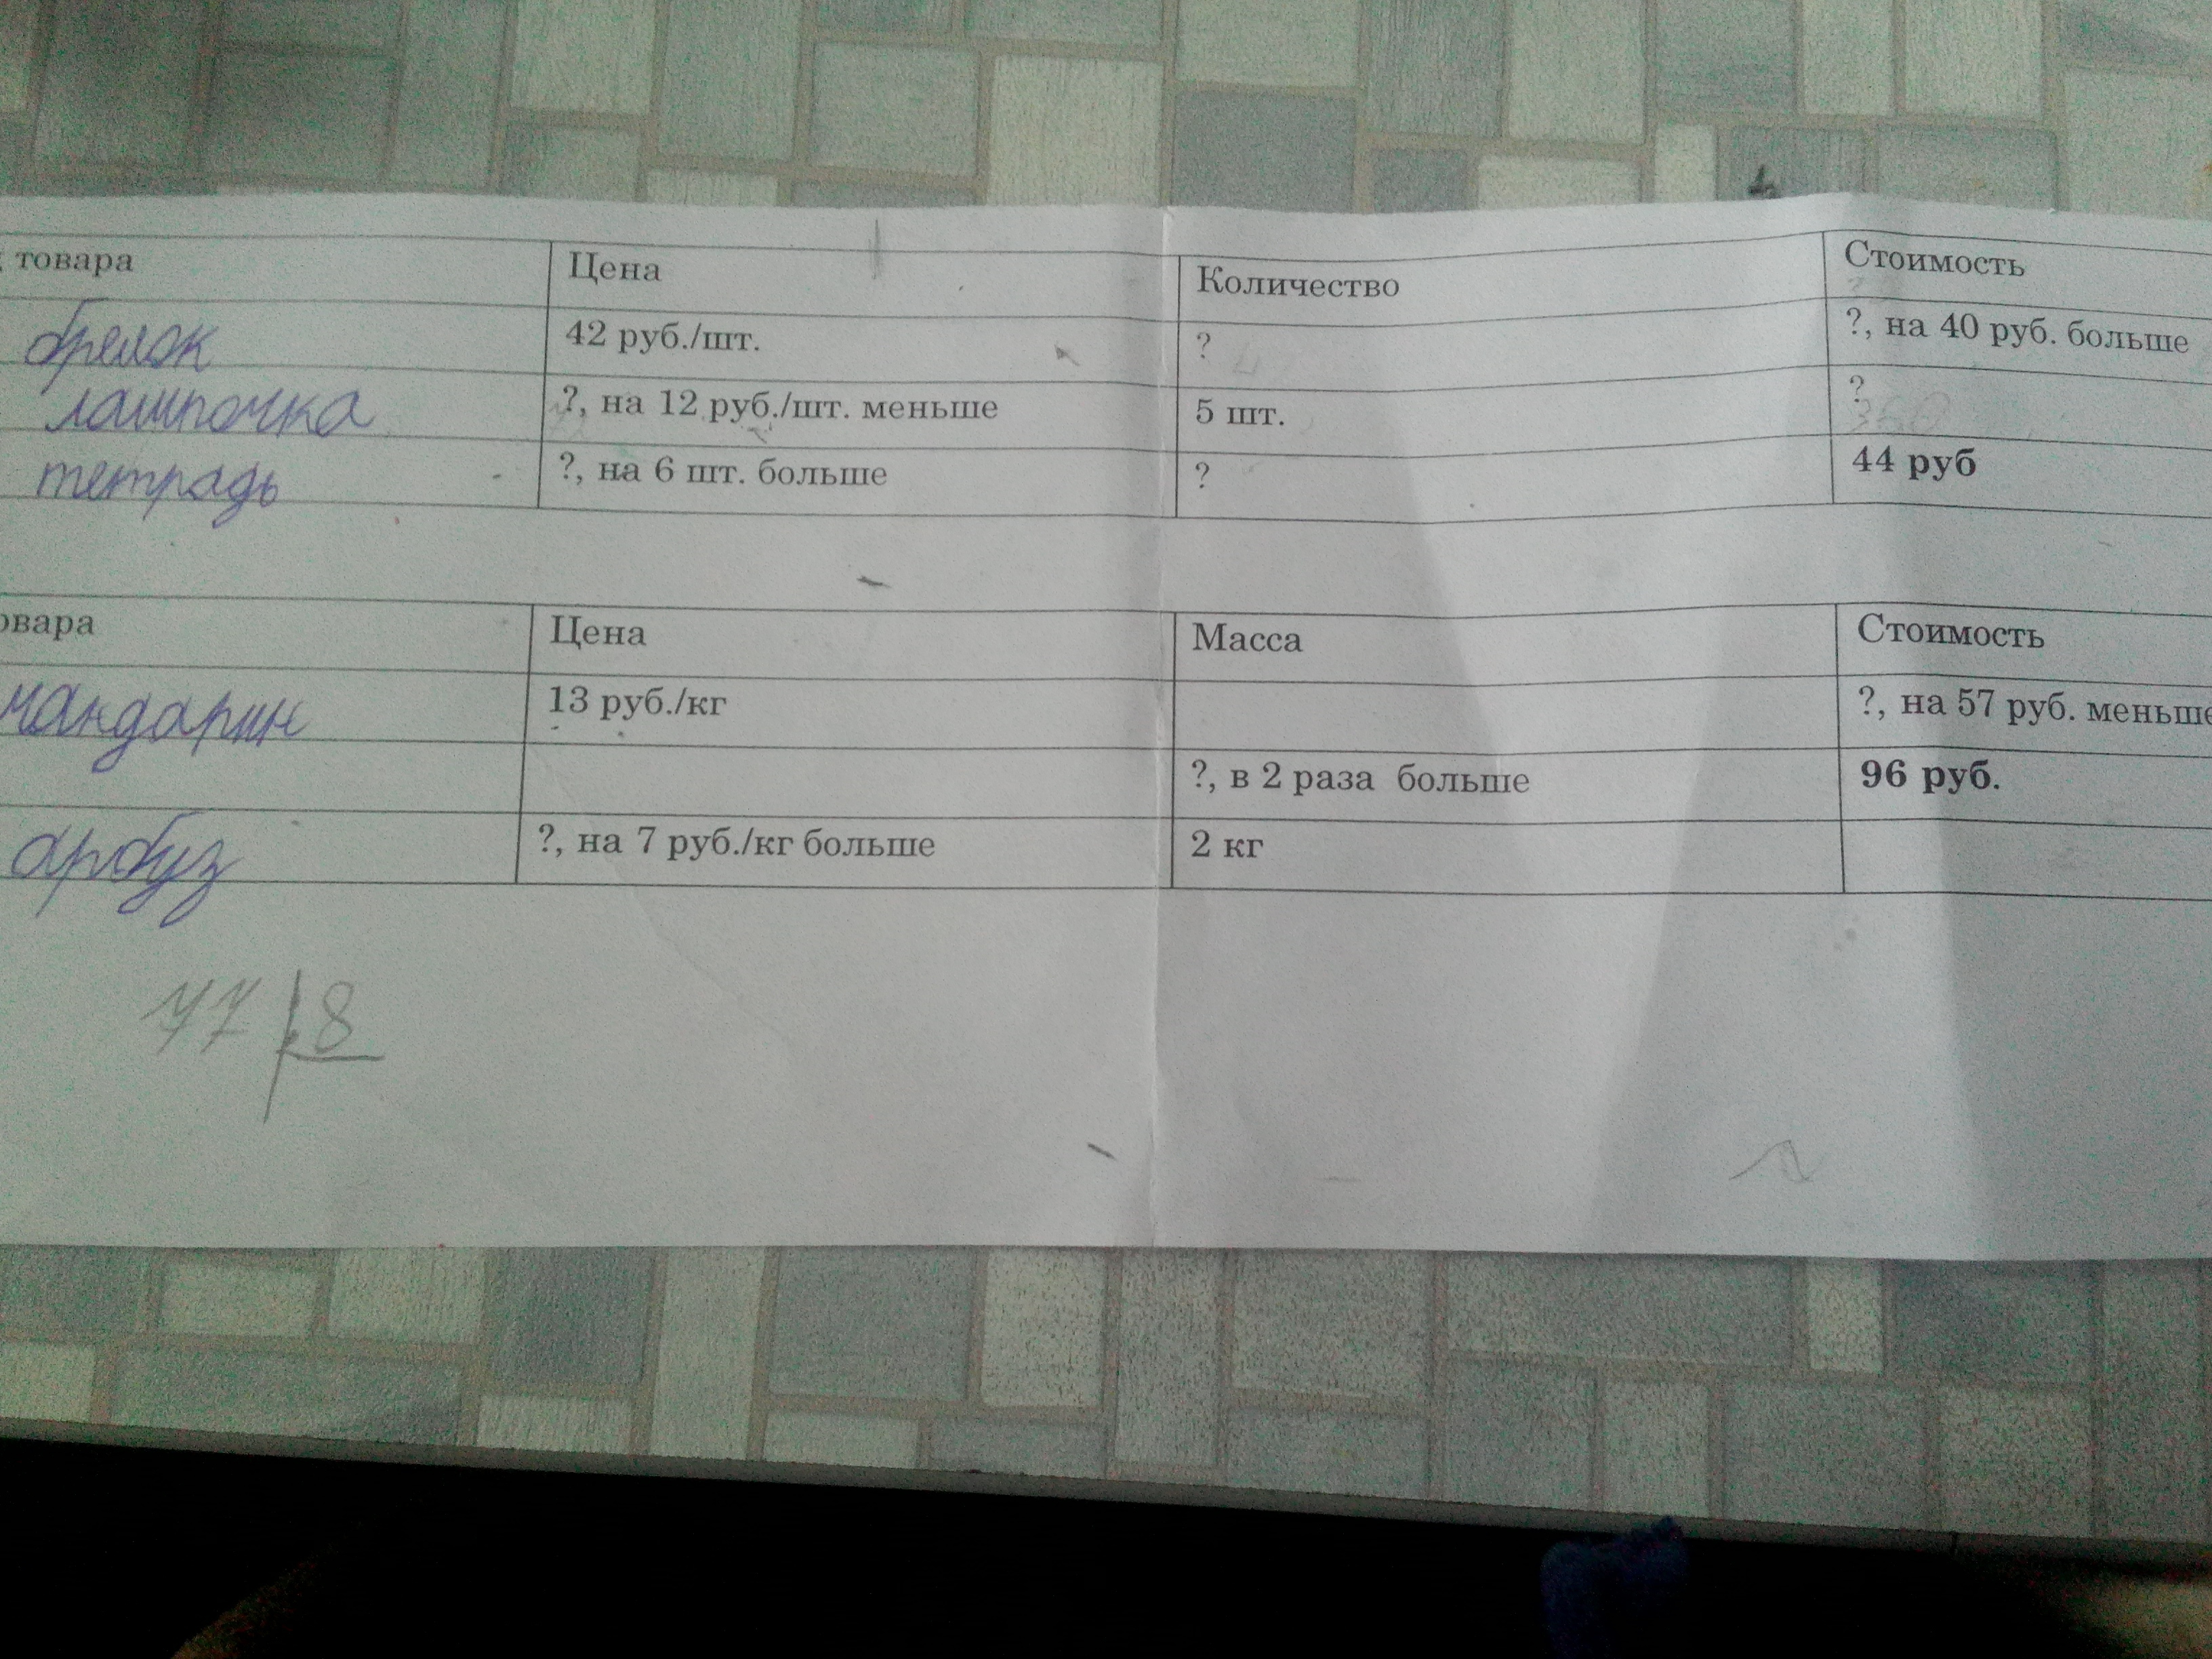 товара Цена Количество Стоимость
брелок 42 руб./шт. ? ?, на 40 руб. больше
лампочка ?, на 12 руб./шт. меньше 5 шт. ?
360
тетрадь ?, на 6 шт. больше ? 44 руб
овара Цена Масса Стоимость
мандарин 13 руб./кг ?, на 57 руб. меньше
?, в 2 раза больше 96 руб.
арбуз ?, на 7 руб./кг больше 2 кг
77 8